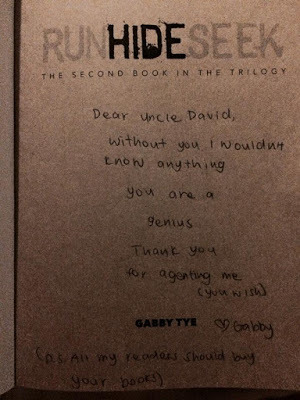 RUNHIDESEEK
THE SECOND BOOK IN THE TRILOGY
Dear Uncle David,
without you I wouldn't
know anything
you are a
genius
Thank you
for agenting me
(you wish)
GABBY TYE ♡Gabby
(P.S. All my readers should buy
your books)